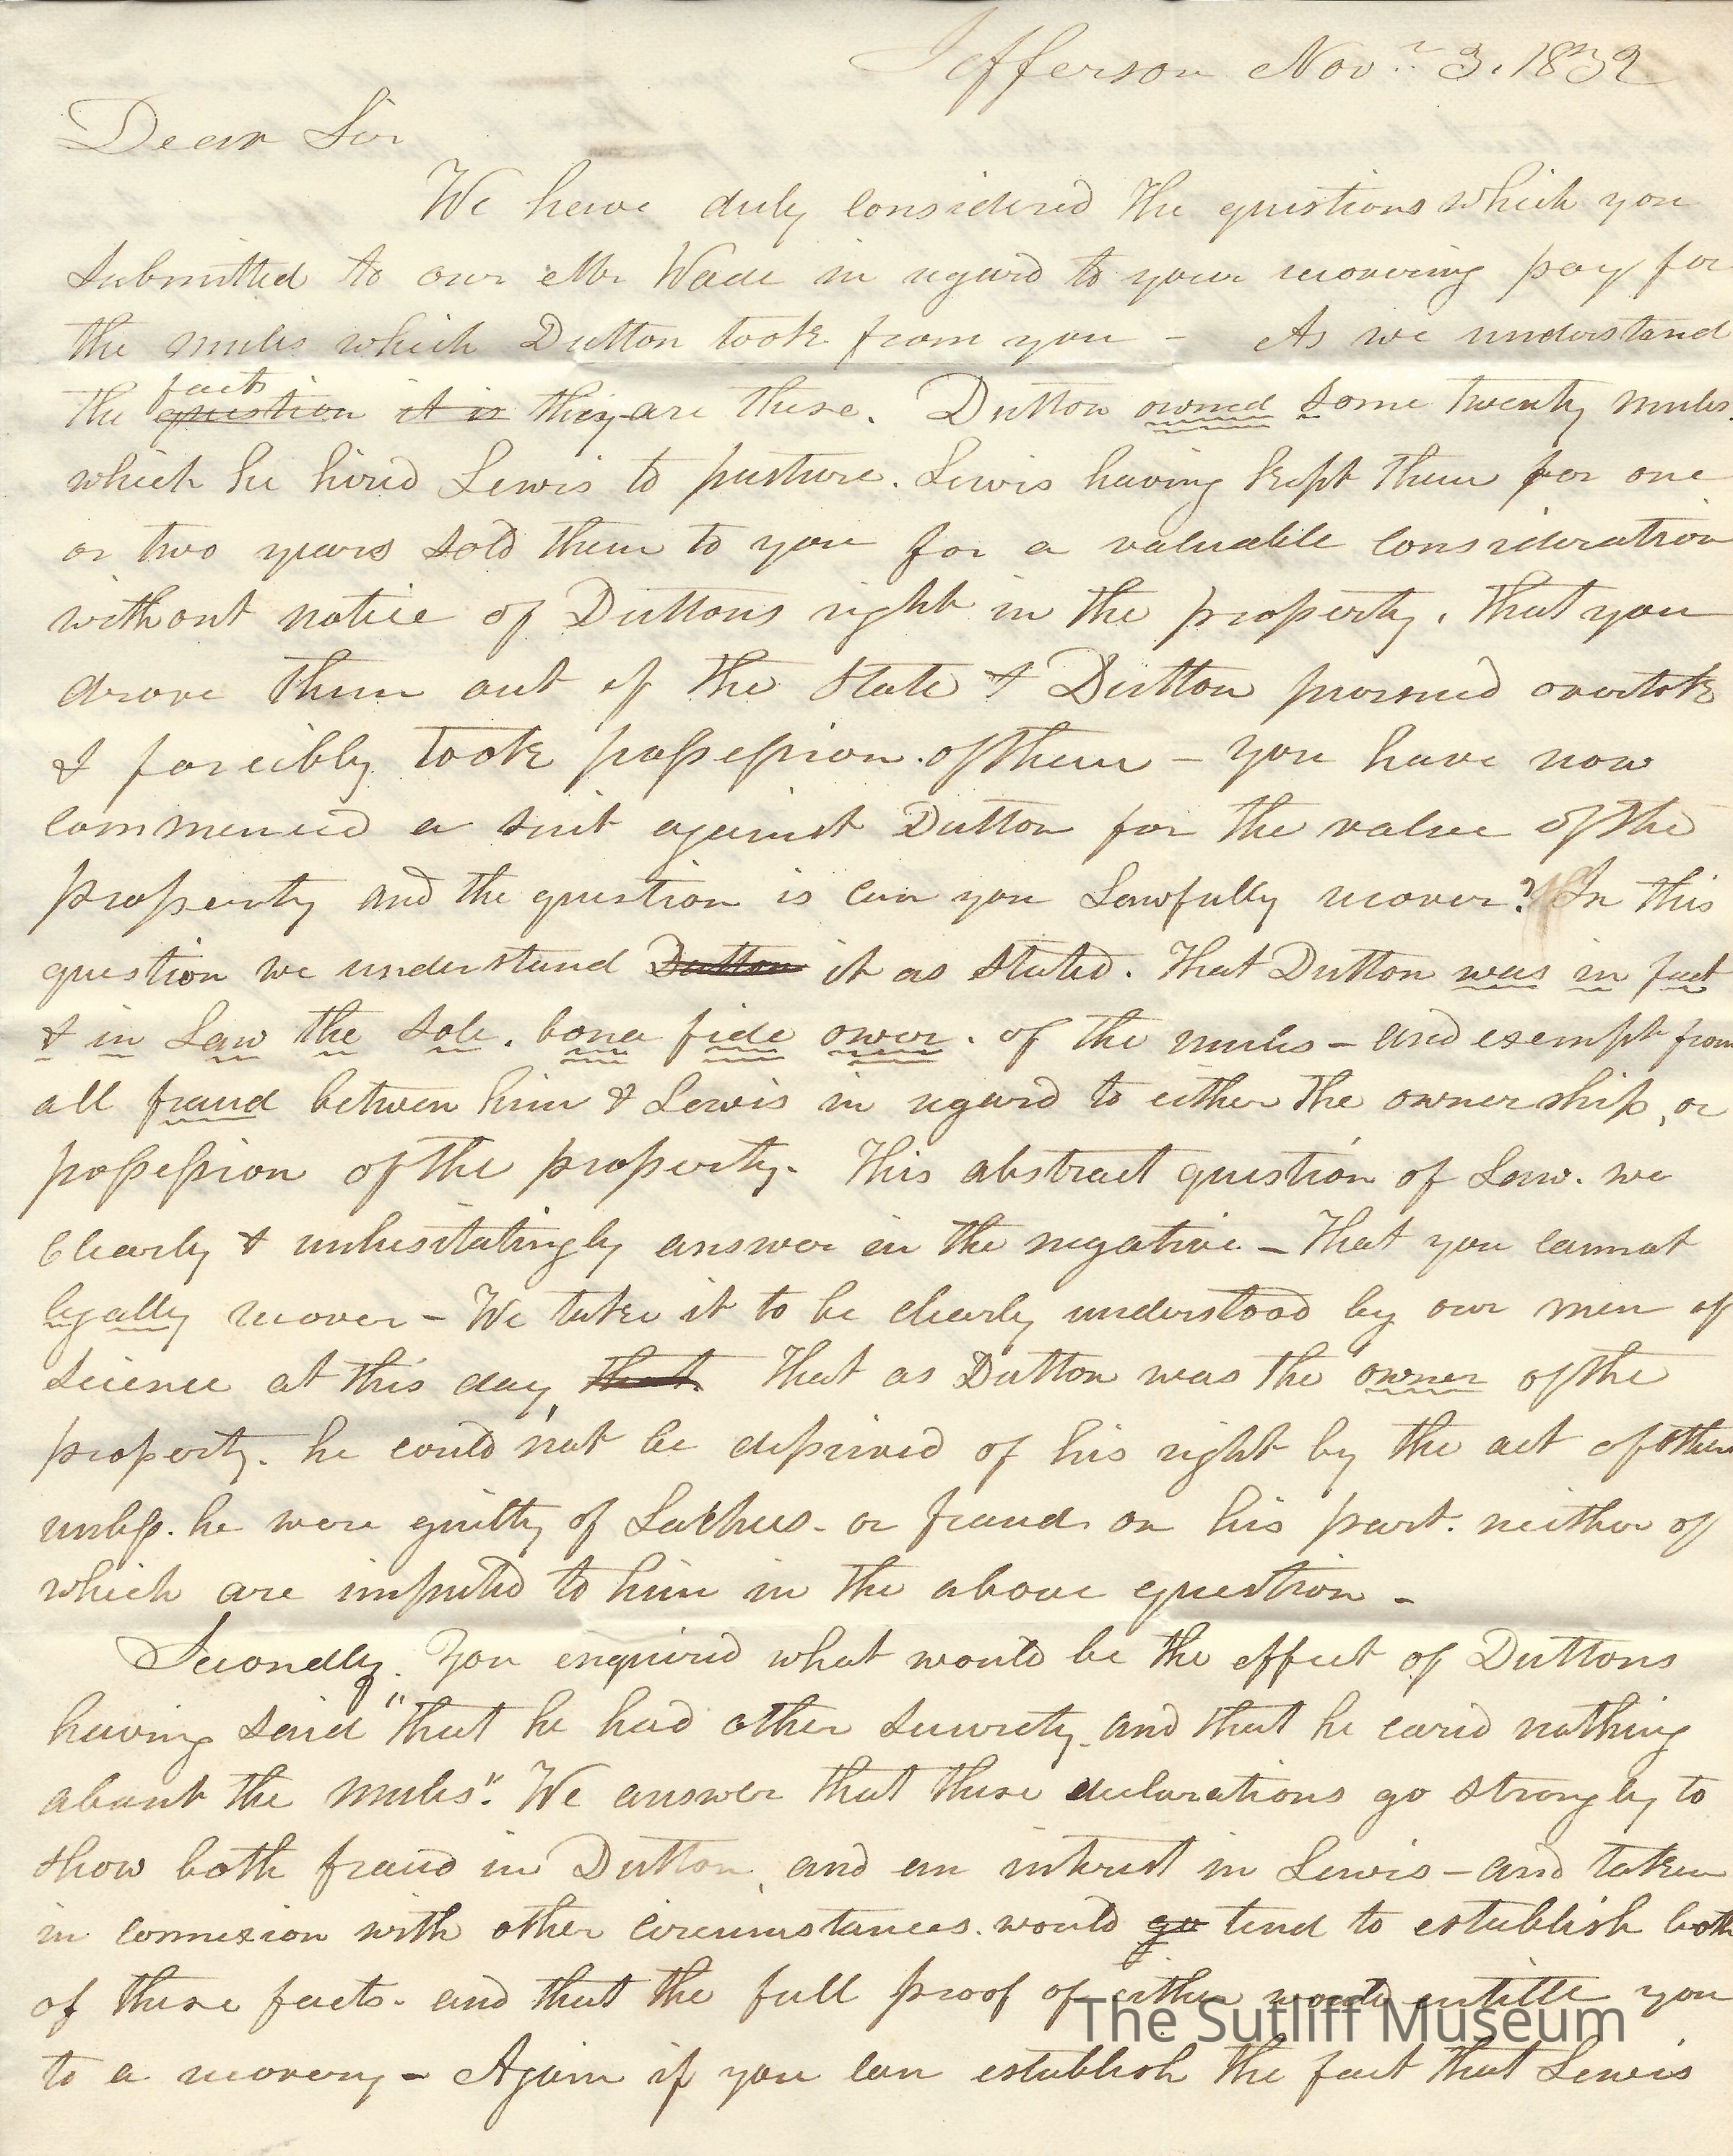 Jefferson Novr. 3. 1832
Dear Sir
We have duly considered the questions which you
submitted to our Mr Wade in regard to your recovering pay for
the mules which Dutton took from you – As we understand
the facts question it is they are these. Dutton owned some twenty mules.
which he hired Lewis to pasture. Lewis having kept them for one
or two years sold them to you for a valuable consideration
without notice of Duttons right in the property. that you
drove them out of the State & Dutton pursued overtook
& forcibly took possession of them – you have now
commenced a suit against Dutton for the value of the
property and the question is can you Lawfully recover? In this
question we understand Dutton it as stated. That Dutton was in fact
& in Law the sole. bona fide owner. of the mules – and exempt from
all fraud between him & Lewis in regard to either the ownership, or
possession of the property. This abstract question of Law. we
clearly & unhesitatingly answer in the negative – That you cannot
legally recover – We take it to be clearly understood by our men of
science at this day, that. That as Dutton was the owner of the
property. he could not be deprived of his right by the act of others
unless. he were guilty of Lachus. or fraud on his part. neither of
which are imputed to him in the above question –
Secondly. You enquired what would be the effect of Duttons
having said "that he had other security. and that he cared nothing
about the mules". We answer that these declarations go strongly to
show both fraud in Dutton, and an interest in Lewis – and taken
in connexion with other circumstances. would go tend to establish both
of these facts. and that the full proof of either would entitle you
to a recovery – Again if you can establish the fact that Lewis
The Sutliff Museum